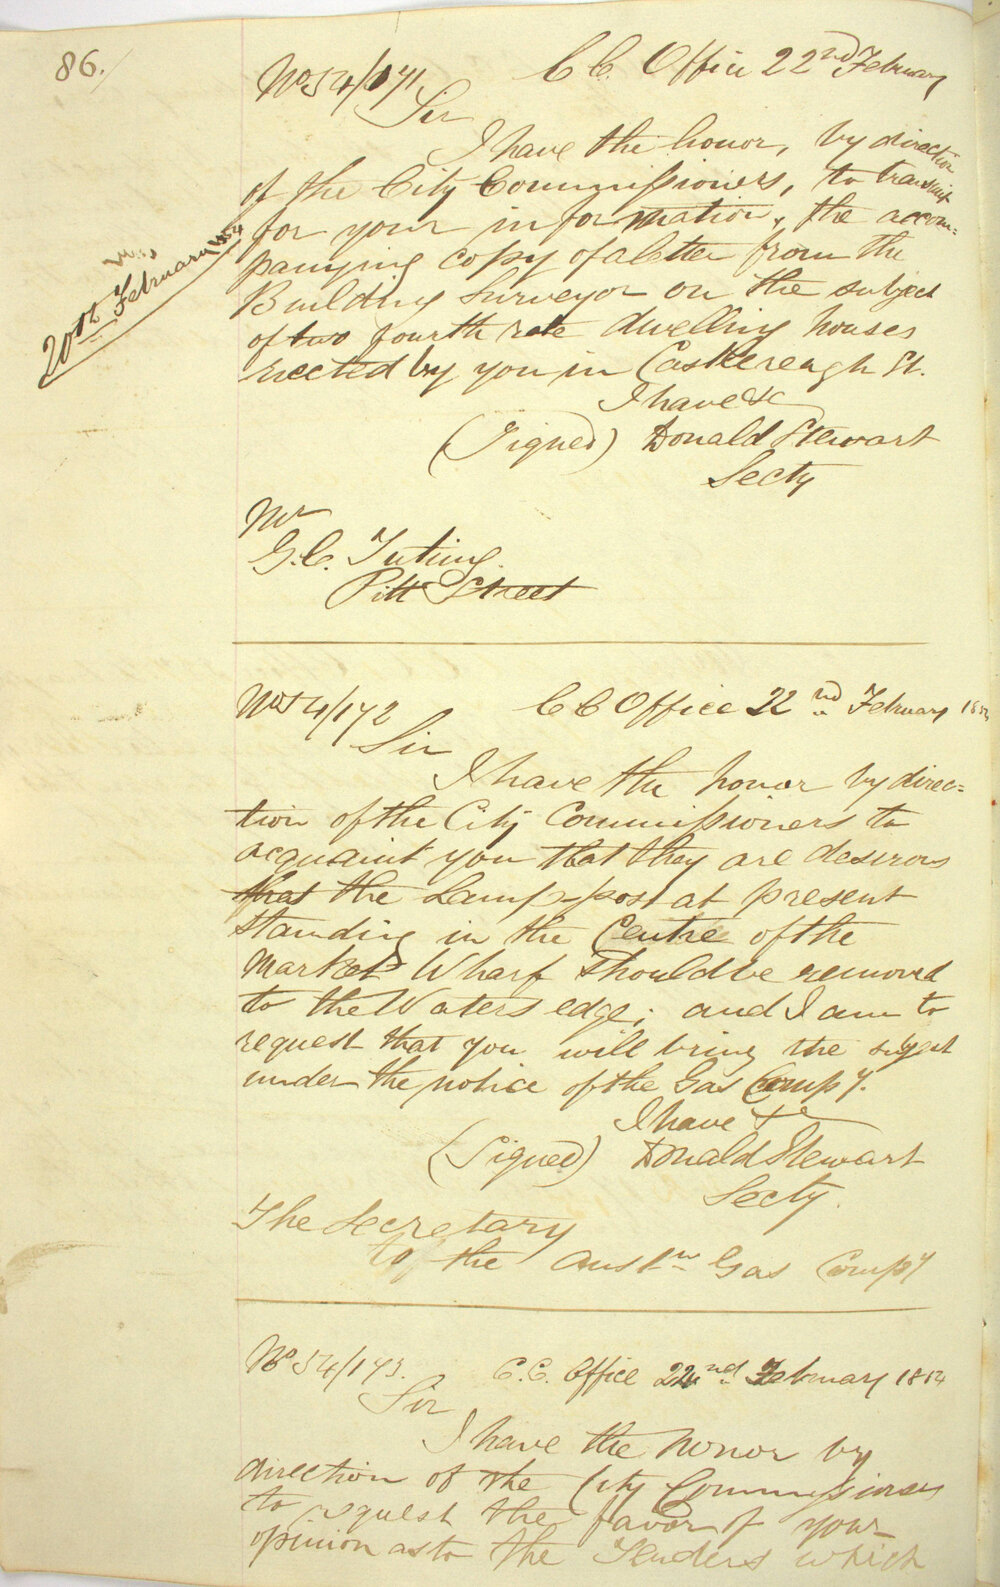 86.
No 54/171
C C. Office 22nd February
Sir
I have the honor, by direction
of the City Commissioners, to transmit
for your information, the accom=
panying copy of a letter from the
Building Surveyor on the subject
of two fourth rate dwelling houses
erected by you in Castlereagh St.
20th February 1854
I have &c
(Signed) Donald Stewart
Secty
Mr
G. C. Tuting
Pitt Street
No 54/172
C C Office 22nd February 1854
Sir
I have the honor by direc=
tion of the City Commissioners to
acquaint you that they are desirous
that the Lamp-post at present
standing in the Centre of the
Market Wharf should be removed
to the Waters edge; and I am to
request that you will bring the subject
under the notice of the Gas Compy.
I have &c
(Signed) Donald Stewart
Secty.
The Secretary
to the Austn Gas Compy
No 54/173.
C. C. Office 22nd February 1854
Sir
I have the honor by
direction of the City Commissioners
to request the favor of your
opinion as to the Tenders which